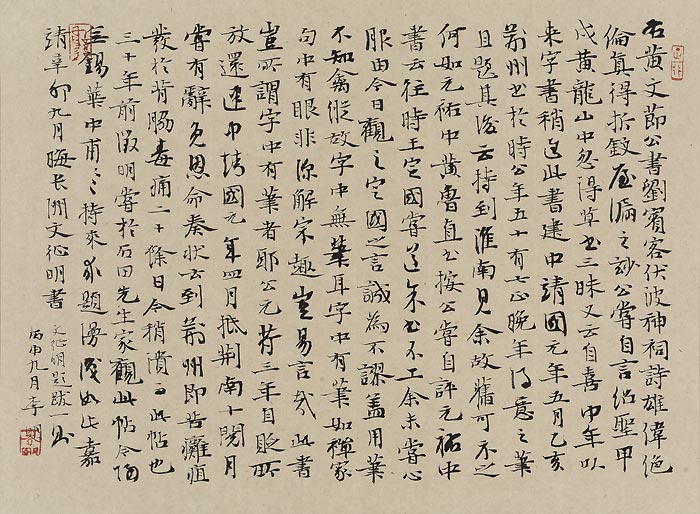 右黄文節公書劉賓客伏波神祠詩雄偉絶
倫真得折釵屋漏之妙公嘗自言紹聖甲
戌黄龍山中忽得草書三昧又云自喜中年以
来字書稍進此書建中靖國元年五月乙亥
荊州書於時公年五十有七正晚年得意之筆
且題其後云持到淮南見余故舊可示之
何如元祐中黄魯直書按公嘗自評元祐中
書云往時王定國嘗道余書不工余未嘗心
服由今日觀之定國之言誠為不謬盖用筆
不知禽縱故字中無筆耳字中有筆如禪家
句中有眼非深解宗趣豈易言哉此書
豈所謂字中有筆者耶公元符三年自貶所
放還建中靖國元年四月抵荊南十閱月
嘗有辭免恩命奏状云到荊州即苦癰疽
發於背脇毒痛二十餘日今稍潰此帖也
三十年前徵明嘗於石田先生家觀此帖今為
無錫華中甫所持来求題漫識如此嘉
靖辛卯九月晦長洲文徵明書
文徵明題跋一則
丙申九月李